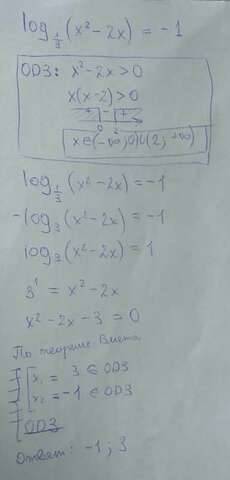 log_{1/3}(x²-2x) = -1
ОДЗ: x²-2x>0
x(x-2)>0
+ - +
0 2
x∈(-∞;0)∪(2;+∞)
log_{1/3}(x²-2x)=-1
-log₃(x²-2x)=-1
log₃(x²-2x)=1
3¹ = x²-2x
x²-2x-3=0
По теореме Виета
x₁ = 3 ∈ ОДЗ
x₂ = -1 ∈ ОДЗ
ОДЗ
Ответ: -1; 3